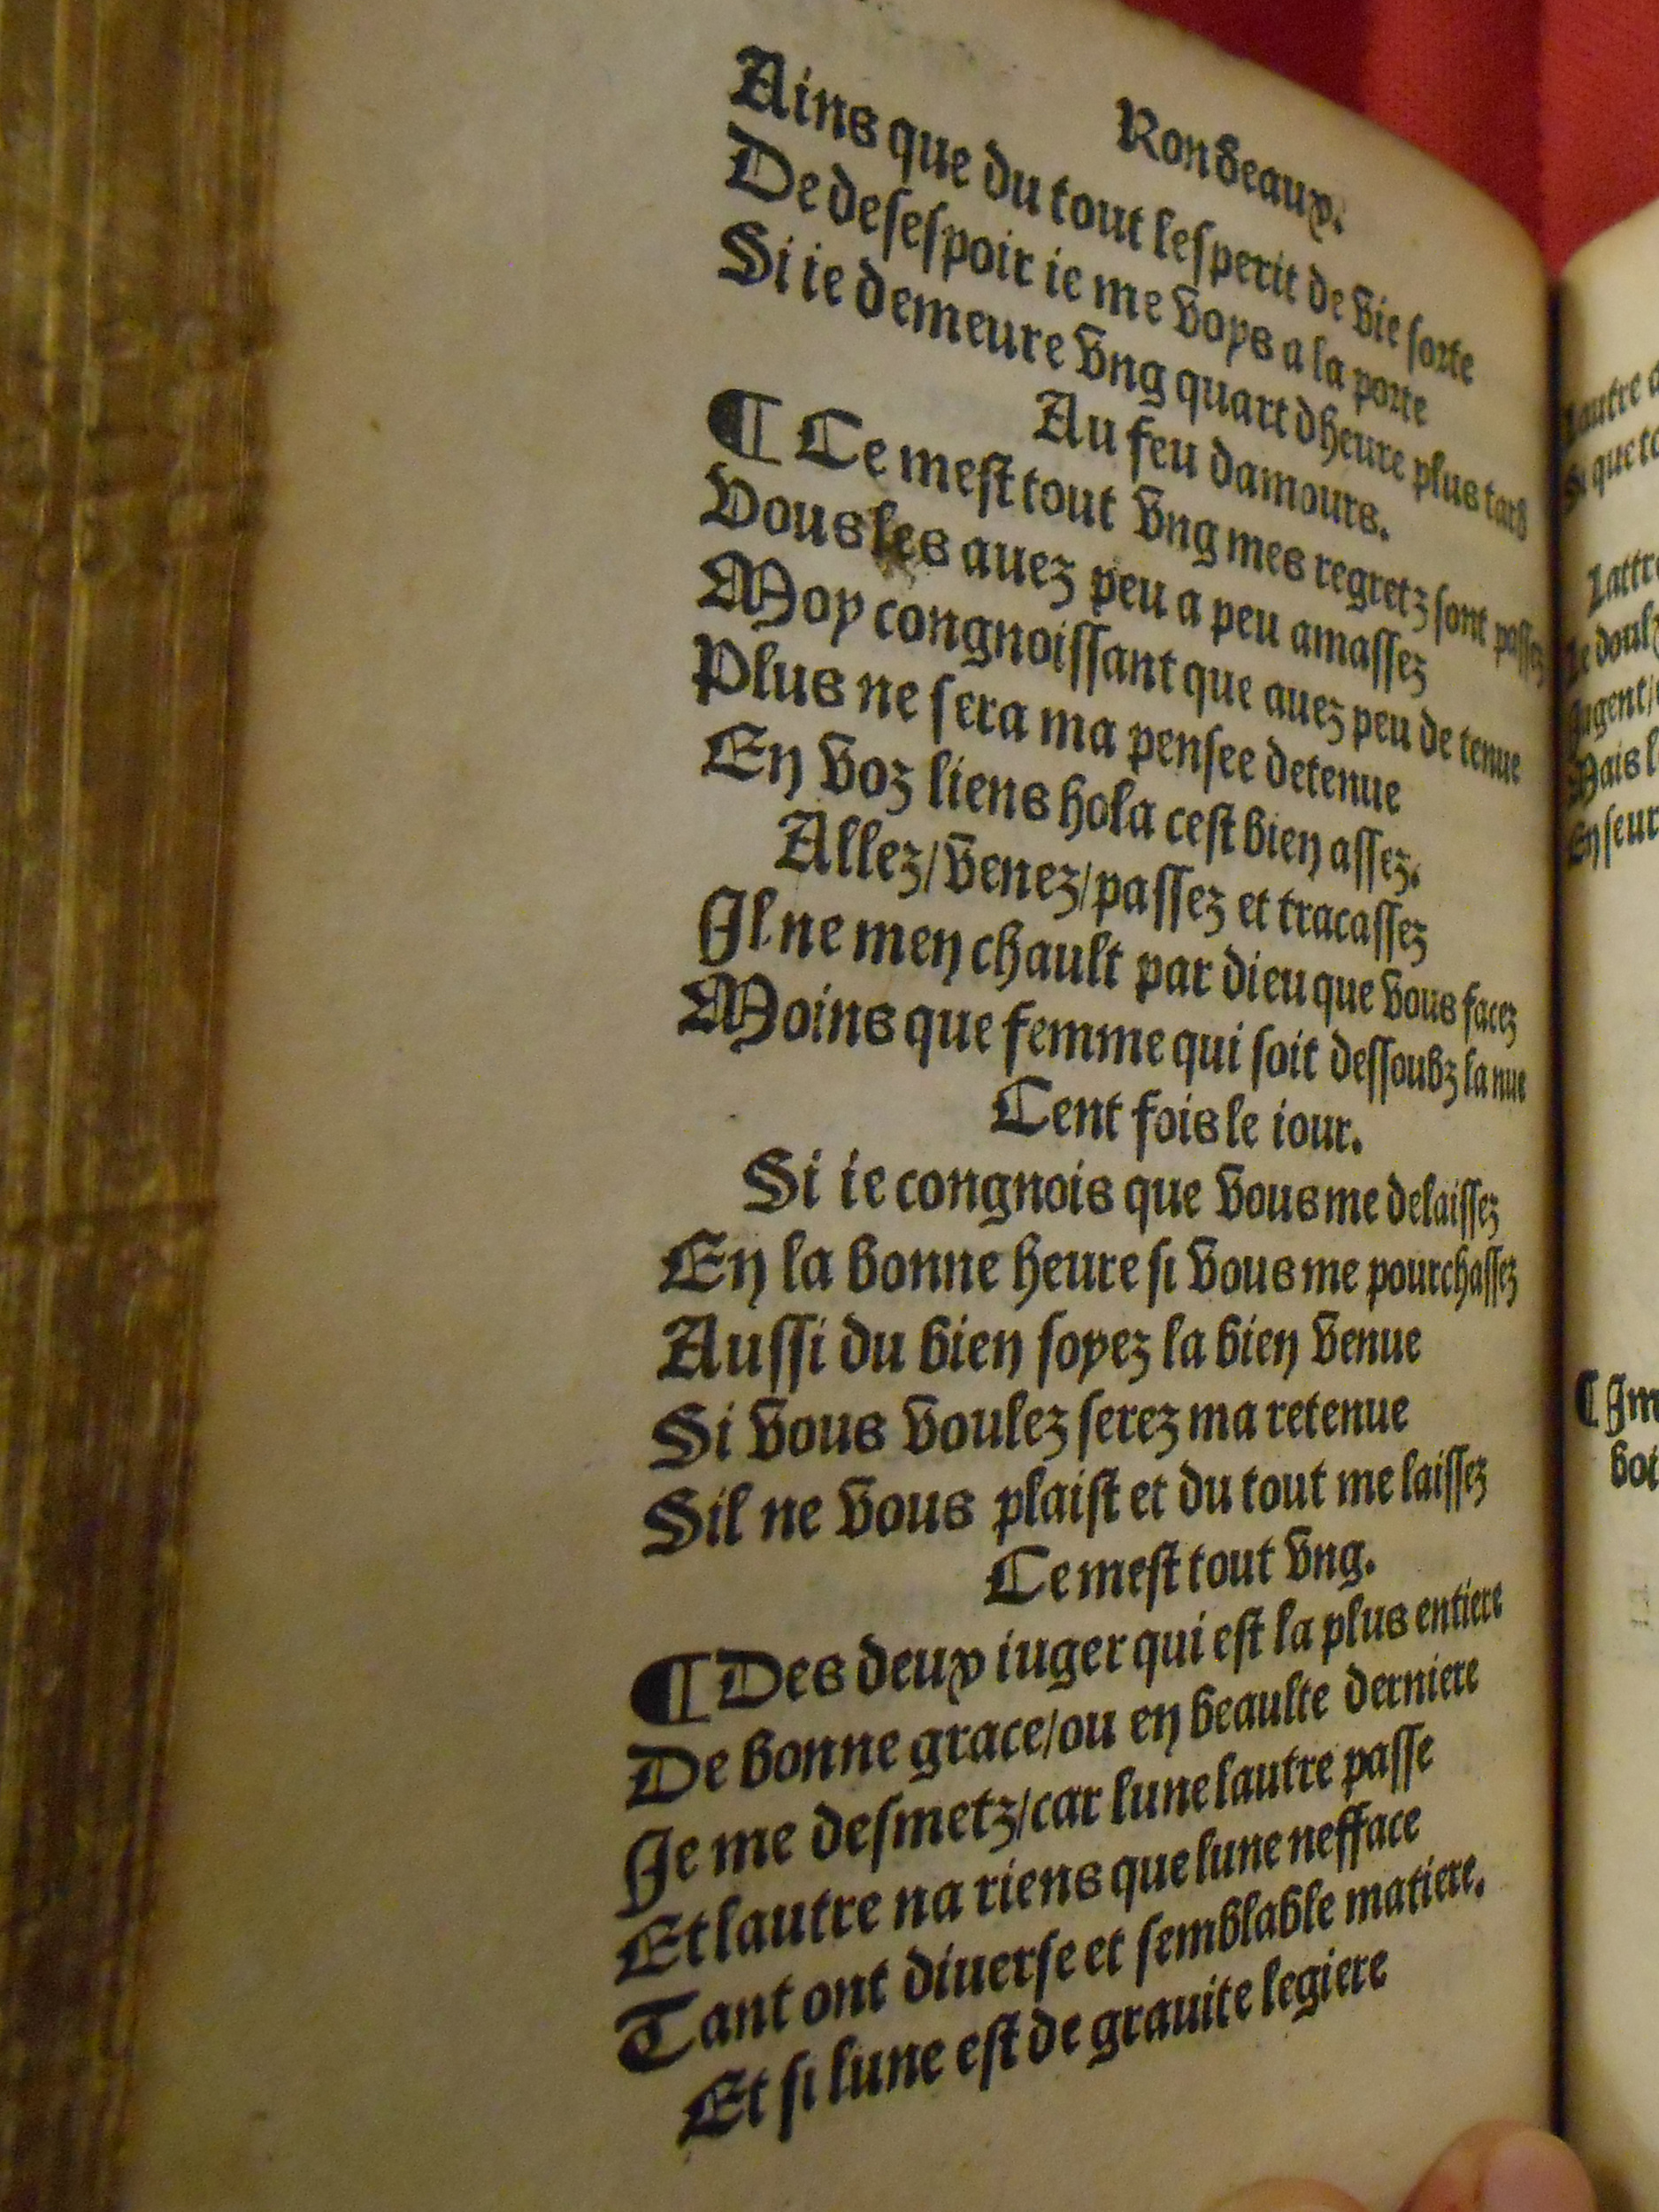 Rondeaux.
Ains que du tout lesperit de vie sorte
De desespoir ie me voys a la porte
Si ie demeure vng quart dheure plus tard
Au feu damours.
¶ Ce mest tout vng mes regretz sont passez
Vous les auez peu a peu amassez
Moy congnoissant que auez peu de tenue
Plus ne sera ma pensee detenue
En voz liens hola cest bien assez.
Allez/venez/passez et tracassez
Il ne men chault par dieu que vous facez
Moins que femme qui soit dessoubz la nue
Cent fois le iour.
Si ie congnois que vous me delaissez
En la bonne heure si vous me pourchassez
Aussi du bien soyez la bien venue
Si vous voulez serez ma retenue
Sil ne vous plaist et du tout me laissez
Ce mest tout vng.
¶ Des deux iuger qui est la plus entiere
De bonne grace/ou en beaulte derniere
Je me desmetz/car lune lautre passe
Et lautre na riens que lune nefface
Tant ont diuerse et semblable matiere.
Et si lune est de grauite legiere
Si que
Mais